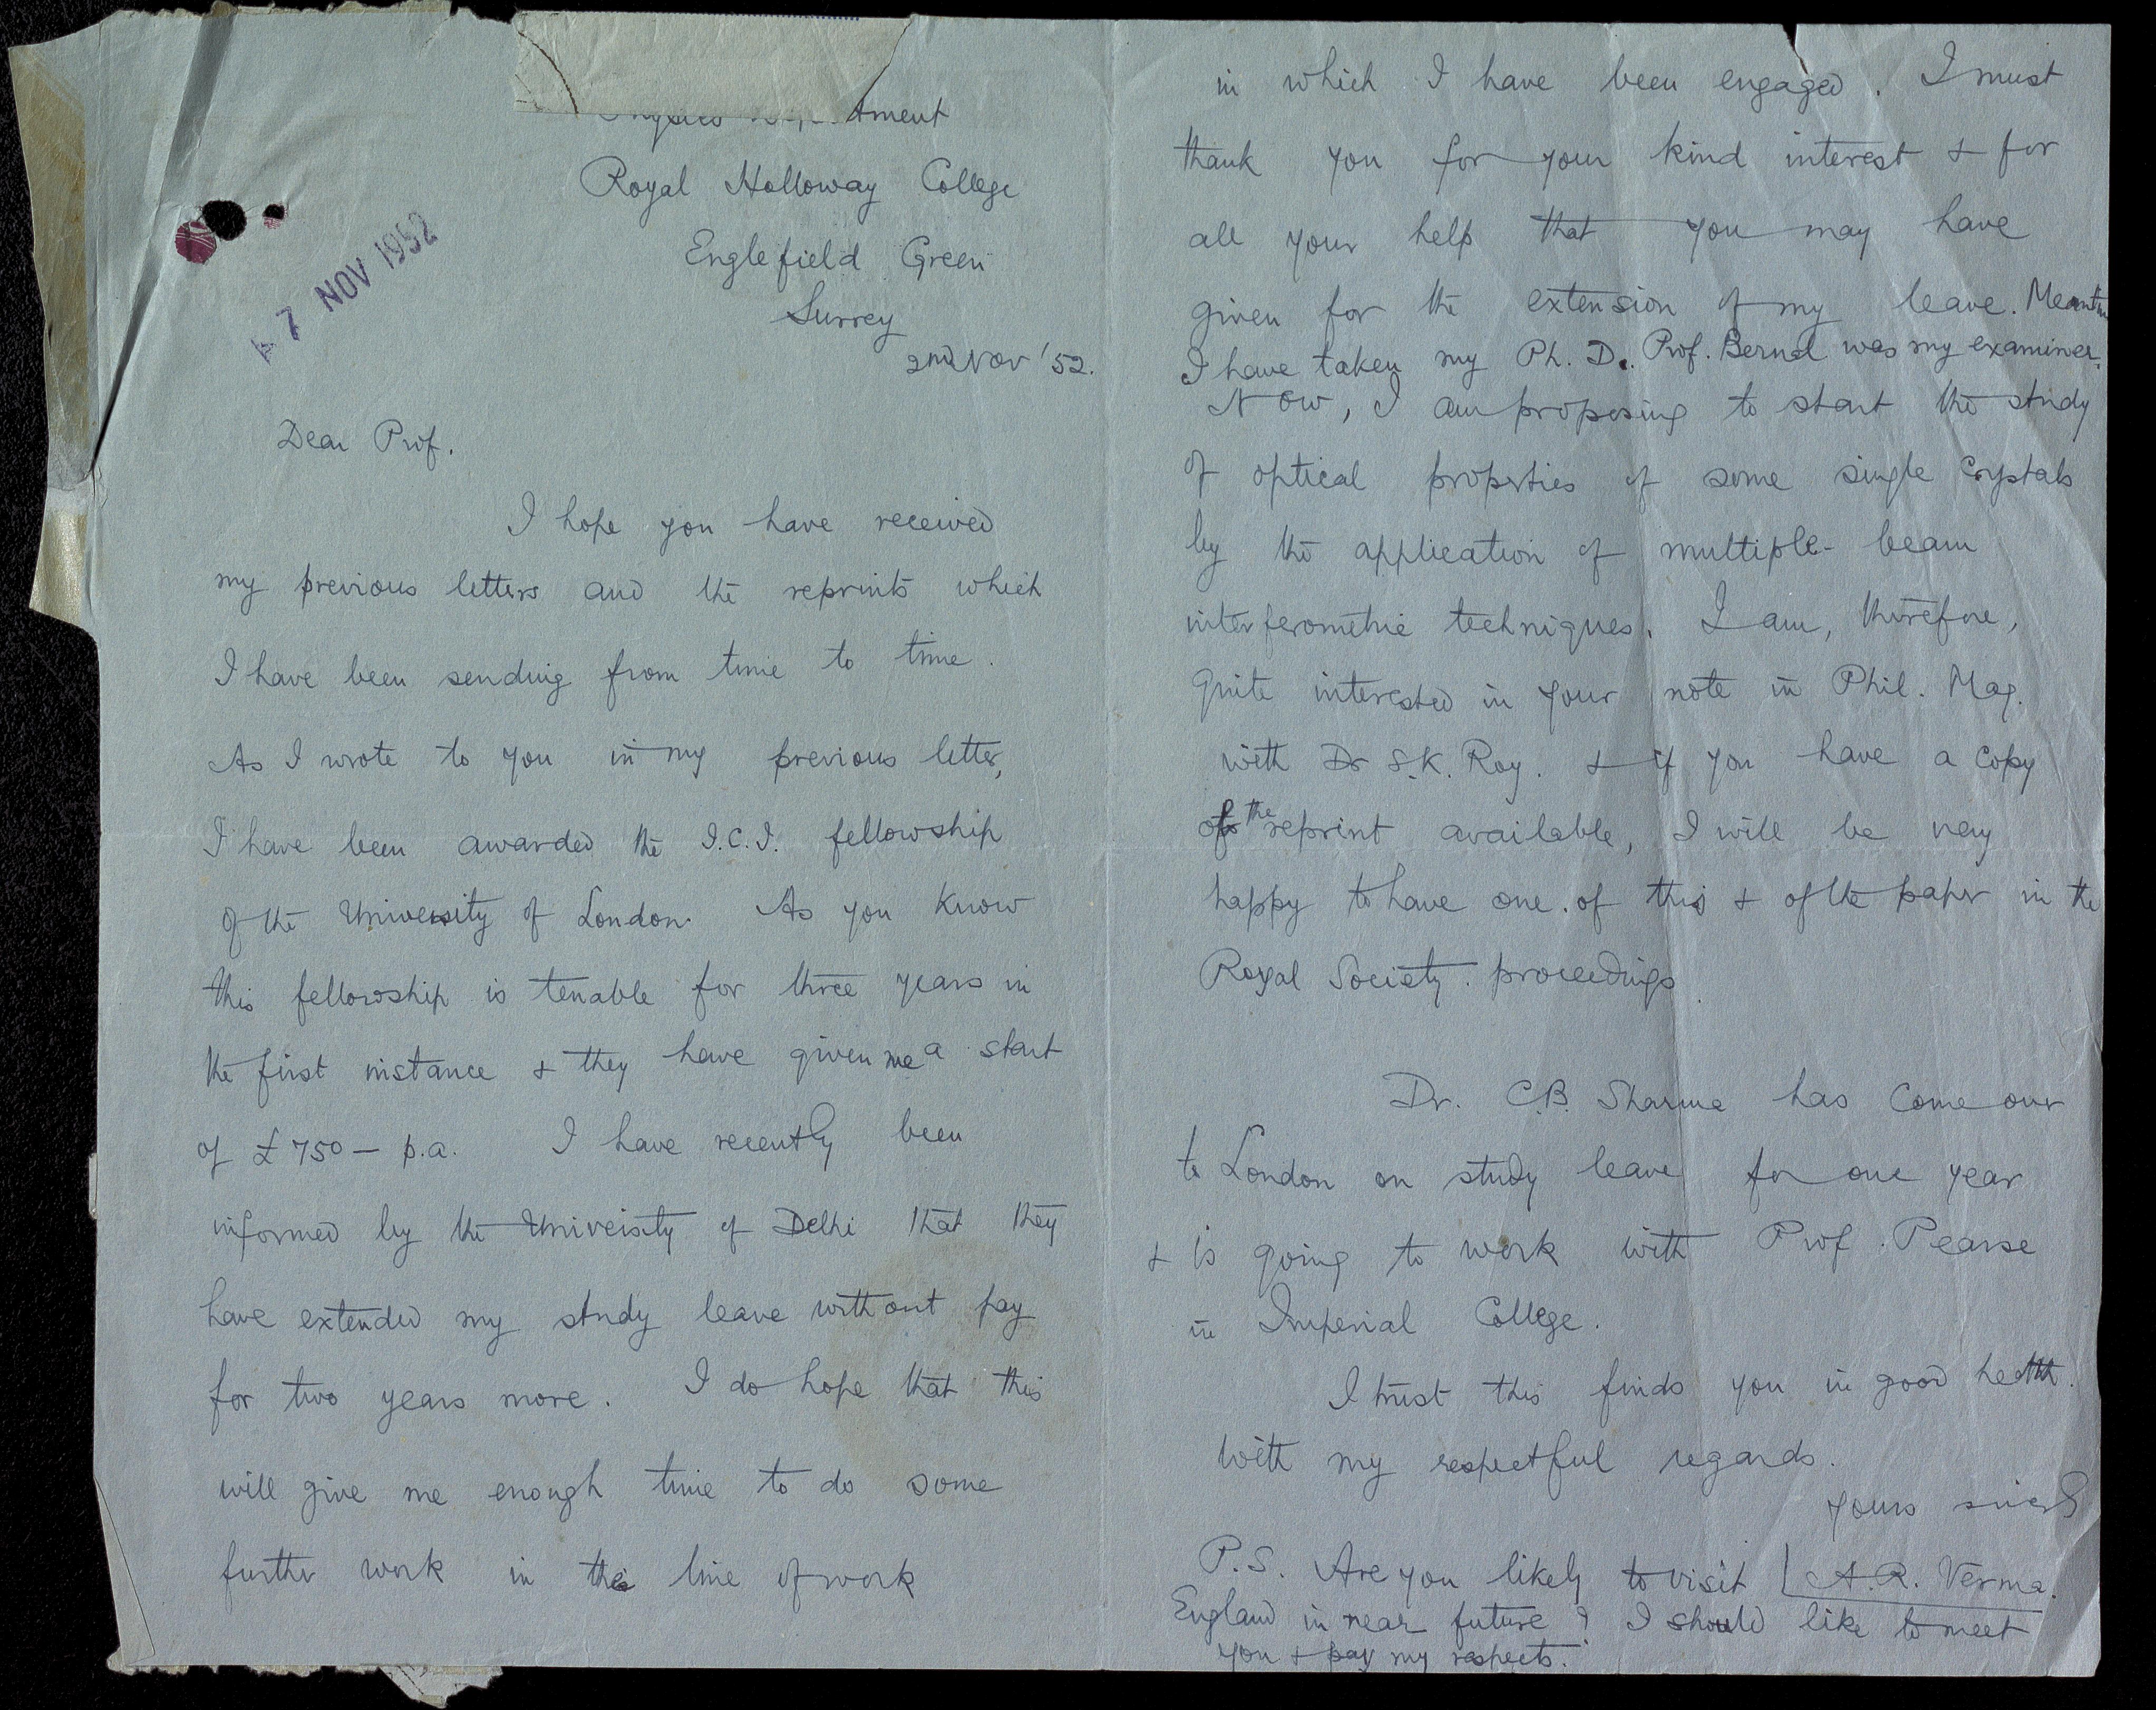 Physics Department
Royal Holloway College
Englefield Green
Surrey
2nd Nov '52.
7 NOV 1952
Dear Prof.
I hope you have received
my previous letters and the reprints which
I have been sending from time to time.
As I wrote to you in my previous letter,
I have been awarded the I.C.I. fellowship
of the University of London. As you know
this fellowship is tenable for three years in
the first instance & they have given me a start
of £750 – p.a. I have recently been
informed by the University of Delhi that they
have extended my study leave without pay
for two years more. I do hope that this
will give me enough time to do some
further work in the line of work
in which I have been engaged. I must
thank you for your kind interest & for
all your help that you may have
given for the extension of my leave.
I have taken my Ph. D. Prof. Bernal was my examiner.
Now, I am proposing to start the study
of optical properties of some single crystals
by the application of multiple-beam
interferometric techniques. I am, therefore,
quite interested in your note in Phil. Mag.
with Dr S.K. Roy. & if you have a copy
of the reprint available, I will be very
happy to have one of this & of the paper in the
Royal Society proceedings.
Dr. C.B. Sharma has come over
to London on study leave for one year
& is going to work with Prof. Pearse
in Imperial College.
I trust this finds you in good health.
With my respectful regards.
Yours sincerely
A.R. Verma.
P.S. Are you likely to visit
England in near future? I should like to meet
you & pay my respects.